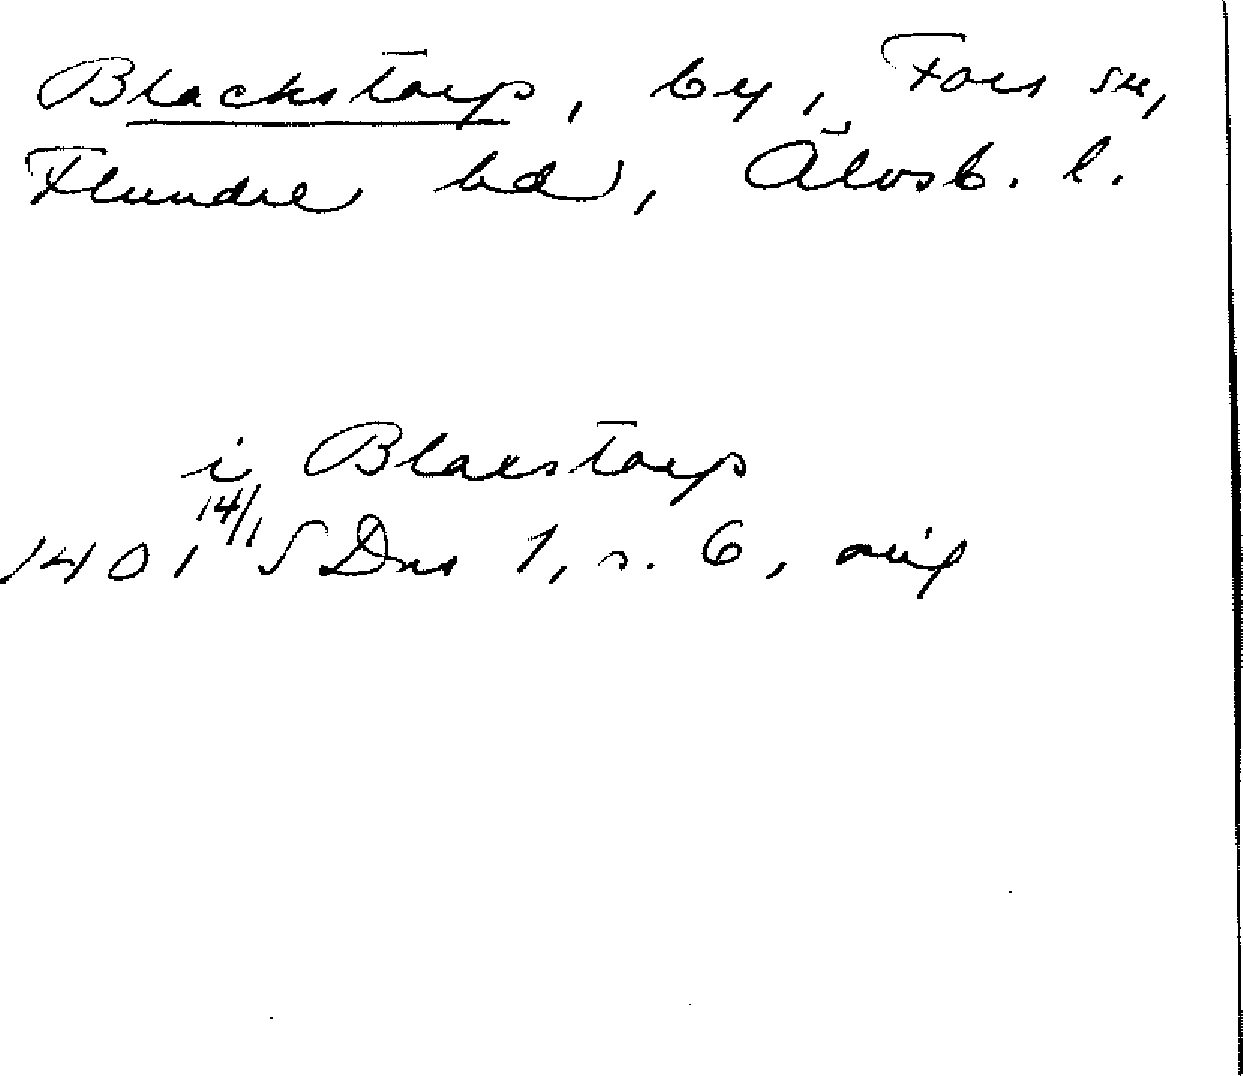 Blackstorp, by, Fors sn,
Flundre hd, Älvsb. l.
i Blaxstorp
1401 14/1 SDns 1, s. 6, orig